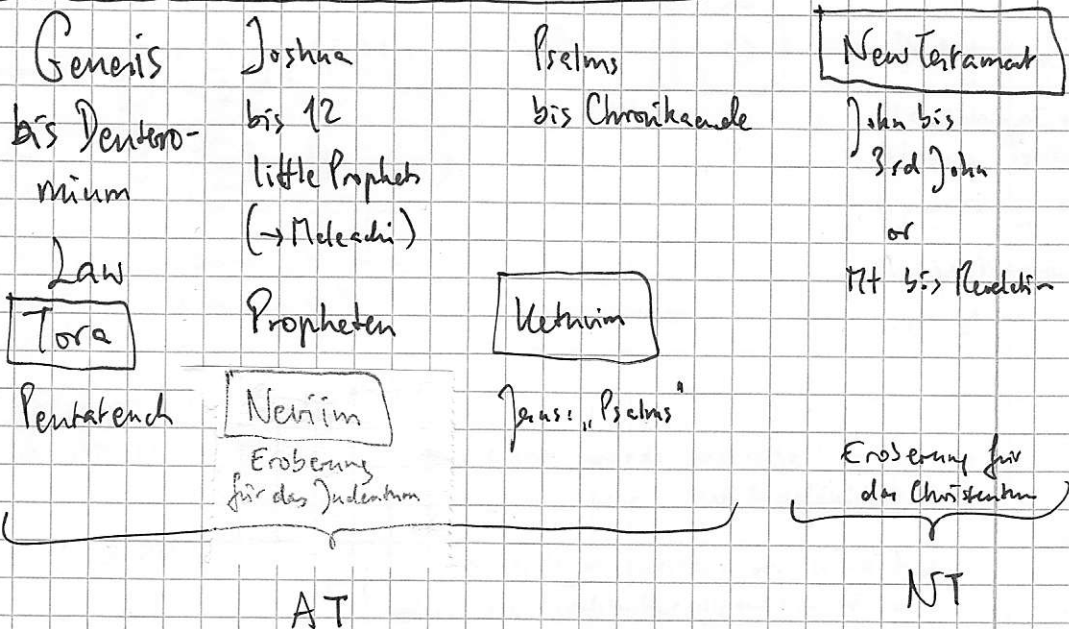 Genesis
bis Deutero-
mium
Law
Tora
Pentateuch
Joshua
bis 12
little Prophets
(→ Maleachi)
Propheten
Neviim
Eroberung
für das Judentum
Psalms
bis Chronikaende
Ketuvim
Jesus: „Psalms"
AT
New Testament
John bis
3rd John
or
Mt bis Revelation
Eroberung für
das Christentum
NT